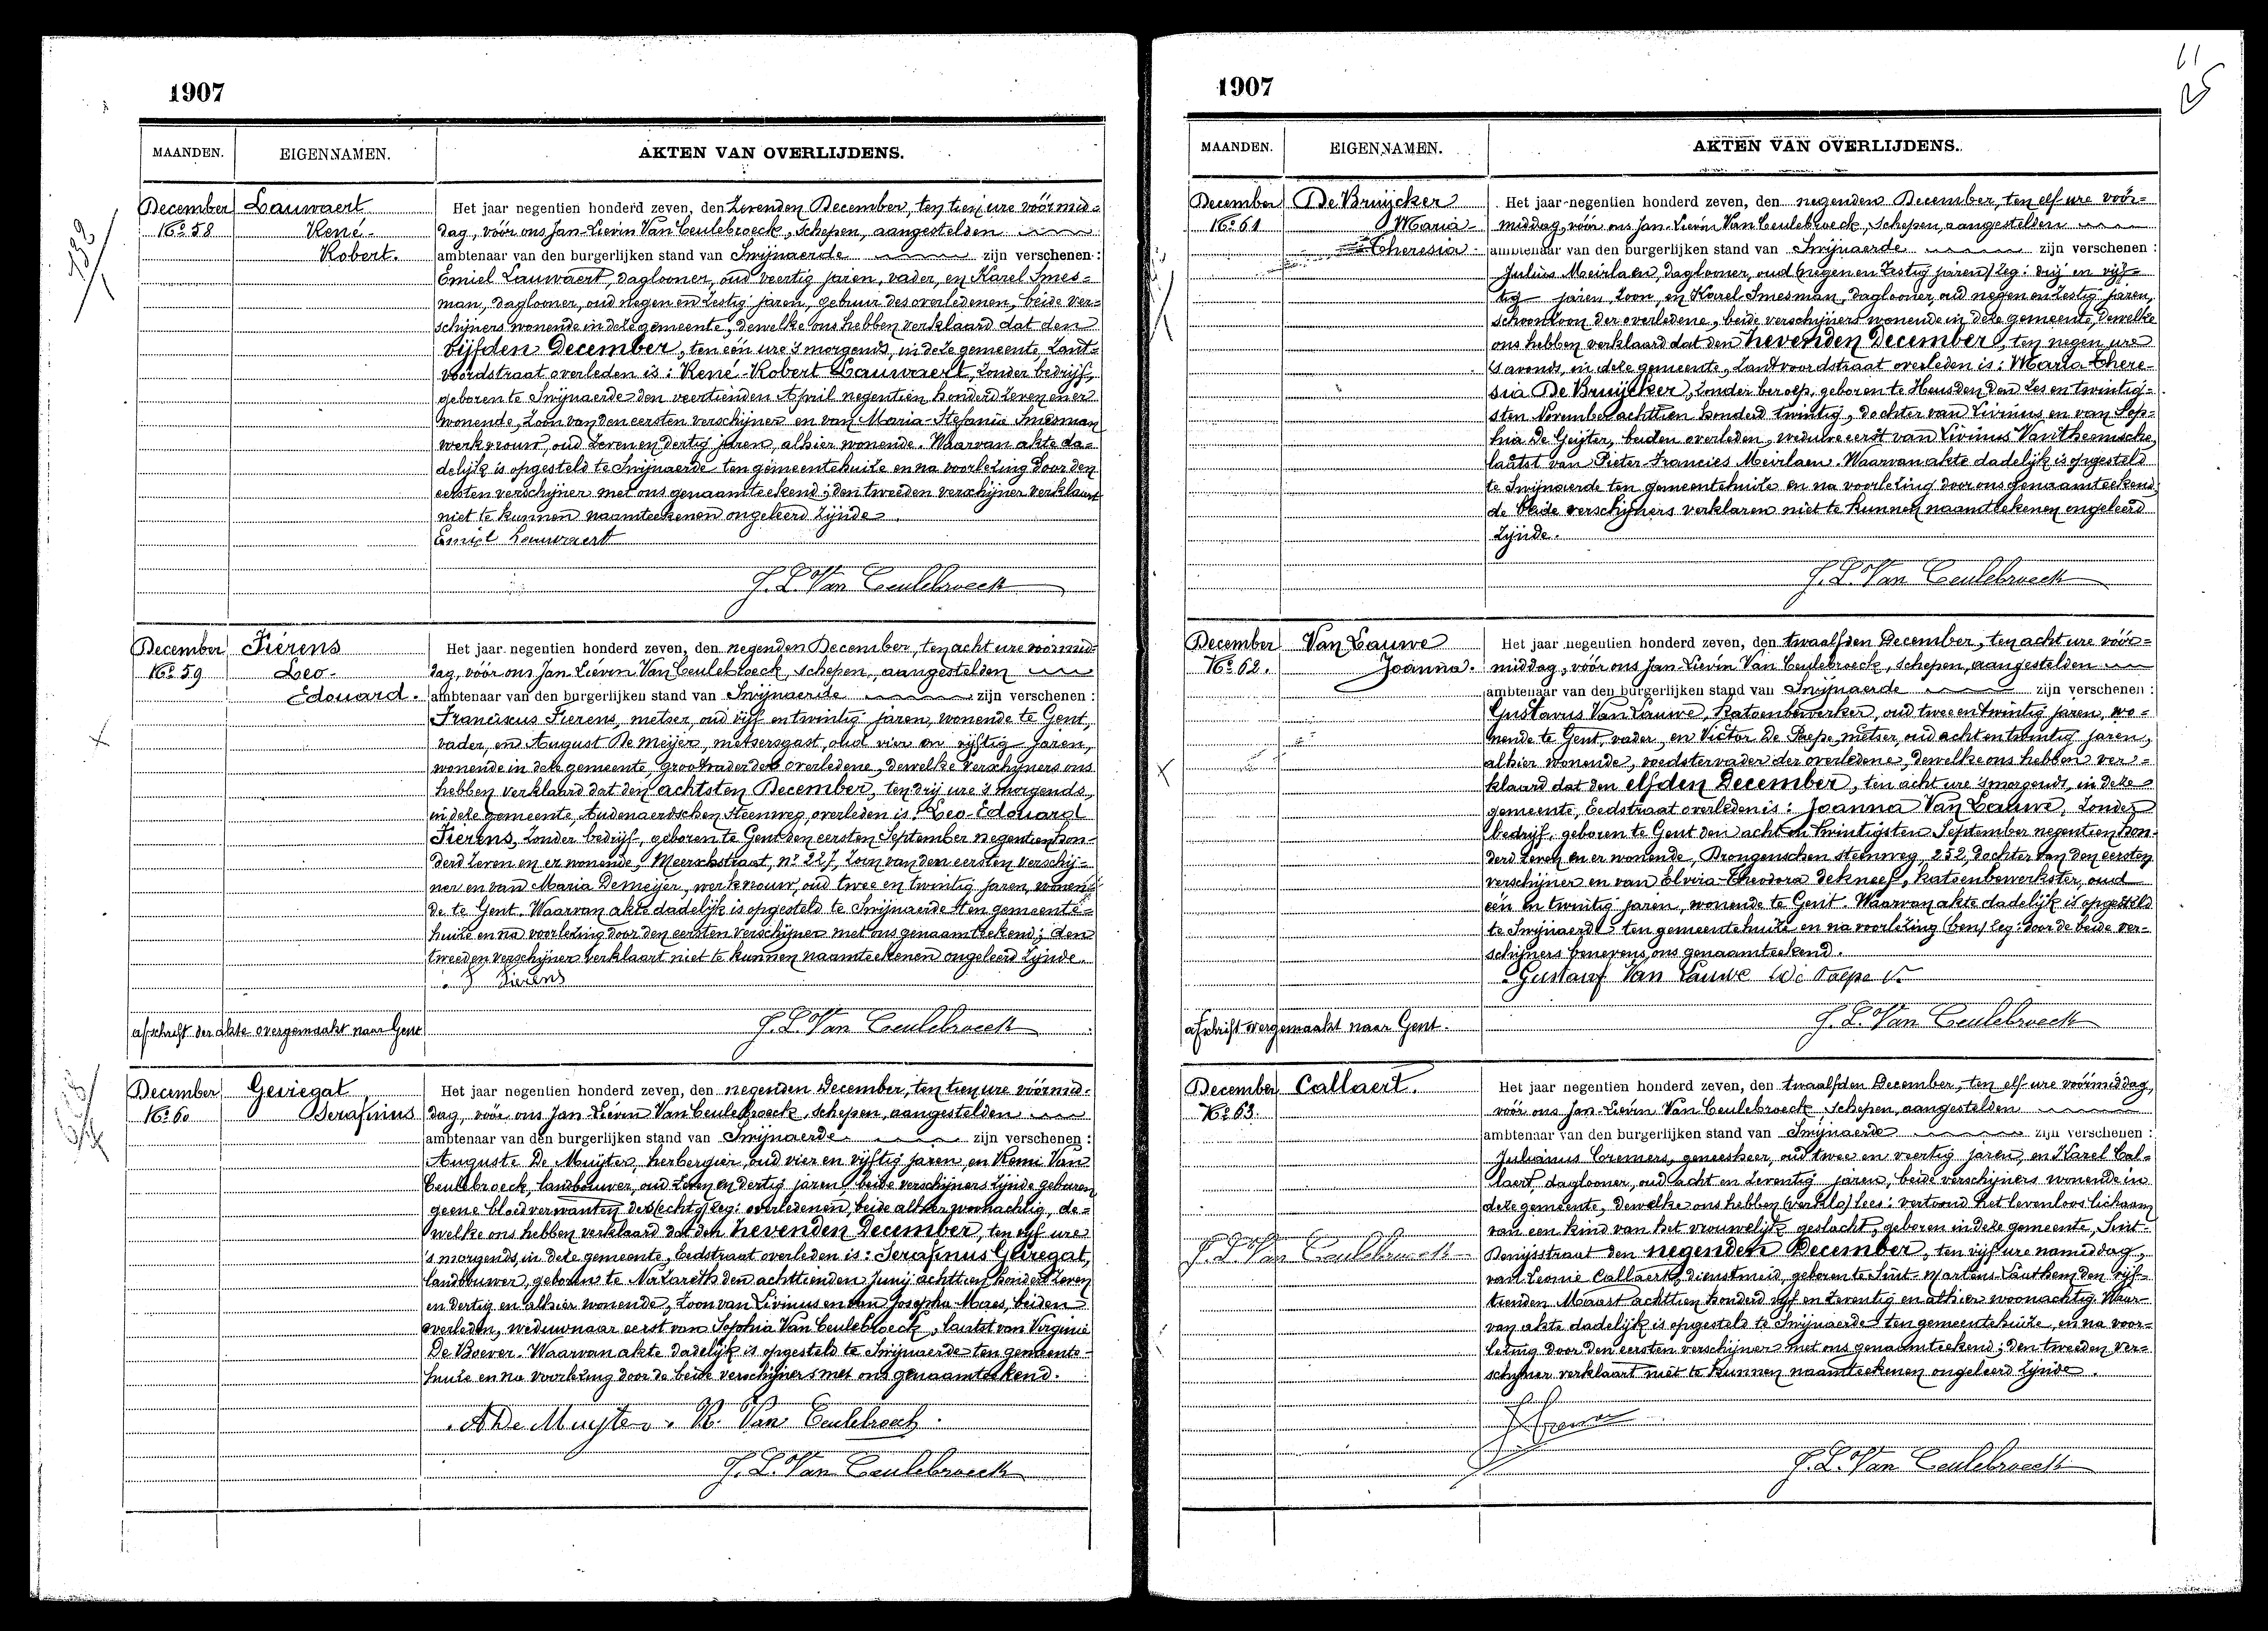 1907
MAANDEN. EIGENNAMEN. AKTEN VAN OVERLIJDENS.
December Lauwaert
No 58 René-
Robert.
Het jaar negentien honderd zeven, den zevenden December, ten tien ure vóórmid=
dag, vóór ons Jan-Lievin Van Ceulebroeck, schepen, aangestelden
ambtenaar van den burgerlijken stand van Swijnaerde zijn verschenen:
Emiel Lauwaert, daglooner, oud veertig jaren, vader, en Karel Smes=
man, daglooner, oud negen en zestig jaren, gebuur des overledenen, beide ver=
schijners wonende in deze gemeente, dewelke ons hebben verklaard dat den
vijfden December, ten één ure 's morgends, in deze gemeente, Zant=
voordstraat overleden is: René-Robert Lauwaert, zonder bedrijf,
geboren te Swijnaerde den veertienden April negentien honderd zeven en er
wonende, zoon van den eersten verschijner en van Maria-Stefanie Smesman
werkvrouw, oud zeven en dertig jaren, alhier wonende. Waarvan akte da=
delijk is opgesteld te Swijnaerde ten gemeentehuize en na voorlezing door den
eersten verschijner met ons genaamteekend; den tweeden verschijner verklaart
niet te kunnen naamteekenen ongeleerd zijnde.
Emiel Lauwaert
J. L. Van Ceulebroeck
December Fierens
No 59 Leo-
Edouard.
Het jaar negentien honderd zeven, den negenden December, ten acht ure vóórmid=
dag, vóór ons Jan-Lievin Van Ceulebroeck, schepen, aangestelden
ambtenaar van den burgerlijken stand van Swijnaerde zijn verschenen:
Franciscus Fierens, metser, oud vijf en twintig jaren, wonende te Gent,
vader, en August De Meijer, metsersgast, oud vier en vijftig jaren,
wonende in deze gemeente, grootvader des overledene, dewelke verschijners ons
hebben verklaard dat den achtsten December, ten drij ure 's morgends,
in deze gemeente, Audenaerdschen Steenweg, overleden is: Leo-Edouard
Fierens, zonder bedrijf, geboren te Gent den eersten September negentien hon=
derd zeven en er wonende, Meerschstraat, no 227, zoon van den eersten verschij=
ner en van Maria Demeijer, werkvrouw, oud twee en twintig jaren, wonen=
de te Gent. Waarvan akte dadelijk is opgesteld te Swijnaerde ten gemeente=
huize en na voorlezing door den eersten verschijner met ons genaamteekend; den
tweeden verschijner verklaart niet te kunnen naamteekenen ongeleerd zijnde.
F Fierens
J. L. Van Ceulebroeck
afschrift der akte overgemaakt naar Gent
December Geviegat
No 60 Serafinus
Het jaar negentien honderd zeven, den negenden December, ten tien ure vóórmid=
dag, vóór ons Jan-Lievin Van Ceulebroeck, schepen, aangestelden
ambtenaar van den burgerlijken stand van Swijnaerde zijn verschenen:
Auguste De Muijter, herbergier, oud vier en vijftig jaren, en Remi Van
Ceulebroeck, landbouwer, oud zeven en dertig jaren, beide verschijners zijnde geburen
geene bloedverwanten des (echtg) leg: overledenen, beide alhier woonachtig, de=
welke ons hebben verklaard dat den zevenden December, ten vijf ure
's morgends, in deze gemeente, Eedstraat overleden is: Serafinus Geviegat,
landbouwer, geboren te Nazareth den achttienden Junij achttien honderd zeven
en dertig en alhier wonende, zoon van Livinus en van Josepha Maes, beiden
overleden, weduwnaar eerst van Sophia Van Ceulebroeck, laatst van Virginie
De Boever. Waarvan akte dadelijk is opgesteld te Swijnaerde ten gemeente=
huize en na voorlezing door de beide verschijners met ons genaamteekend.
A De Muyter. R. Van Ceulebroeck.
J. L. Van Ceulebroeck
1907
MAANDEN. EIGENNAMEN. AKTEN VAN OVERLIJDENS.
December De Bruijcker
No 61 Maria-
Theresia
Het jaar negentien honderd zeven, den negenden December, ten elf ure vóór=
middag, vóór ons Jan-Lievin Van Ceulebroeck, schepen, aangestelden
ambtenaar van den burgerlijken stand van Swijnaerde zijn verschenen:
Julius Meirlaen, daglooner, oud (negen en zestig jaren) leg: drij en vijf=
tig jaren, zoon, en Karel Smesman, daglooner, oud negen en zestig jaren,
schoonzoon der overledene, beide verschijners wonende in deze gemeente, dewelke
ons hebben verklaard dat den zevenden December, ten negen ure
's avonds, in deze gemeente, Zandvoordstraat overleden is: Maria-There=
sia De Bruijcker, zonder beroep, geboren te Heusden den zes en twintig=
sten November achttien honderd twintig, dochter van Livinus en van Sop=
hia De Geijter, beiden overleden, weduwe eerst van Livinus Vanthemsche,
laatst van Pieter-Francies Meirlaen. Waarvan akte dadelijk is opgesteld
te Swijnaerde ten gemeentehuize en na voorlezing door ons genaamteekend,
de beide verschijners verklaren niet te kunnen naamteekenen ongeleerd
zijnde.
J. L. Van Ceulebroeck
December Van Lauwe
No 62. Joanna.
Het jaar negentien honderd zeven, den twaalfden December, ten acht ure vóór=
middag, vóór ons Jan-Lievin Van Ceulebroeck, schepen, aangestelden
ambtenaar van den burgerlijken stand van Swijnaerde zijn verschenen:
Gustavus Van Lauwe, katoenbewerker, oud twee en twintig jaren, wo=
nende te Gent, vader, en Victor De Paepe, metser, oud acht en twintig jaren,
alhier wonende, voedstervader der overledene, dewelke ons hebben ver=
klaard dat den elfden December, ten acht ure 's morgends, in deze
gemeente, Eedstraat overleden is: Joanna Van Lauwe, zonder
bedrijf, geboren te Gent den acht en twintigsten September negentien hon=
derd zeven en er wonende, Drongenschen steenweg, 252, dochter van den eersten
verschijner en van Elvira-Theodora Dekneef, katoenbewerkster, oud
één en twintig jaren, wonende te Gent. Waarvan akte dadelijk is opgesteld
te Swijnaerde ten gemeentehuize en na voorlezing (ben) leg: door de beide ver=
schijners benevens ons genaamteekend.
Gustaaf Van Lauwe De Paepe V.
J. L. Van Ceulebroeck
afschrift overgemaakt naar Gent.
December Callaert.
No 63
Het jaar negentien honderd zeven, den twaalfden December, ten elf ure vóórmiddag,
vóór ons Jan-Lievin Van Ceulebroeck, schepen, aangestelden
ambtenaar van den burgerlijken stand van Swijnaerde zijn verschenen:
Julianus Cremers, geneesheer, oud twee en veertig jaren, en Karel Cal=
laert, daglooner, oud acht en zeventig jaren, beide verschijners wonende in
deze gemeente, dewelke ons hebben (verkla) lees: vertoond het levenloos lichaam
van een kind van het vrouwelijk geslacht, geboren in deze gemeente, Sint-
J. L. Van Ceulebroeck
Denijsstraat den negenden December, ten vijf ure namiddag,
van Leonie Callaert, dienstmeid, geboren te Sint-Martens-Lauthem den vijf=
tienden Maart achttien honderd vijf en zeventig en alhier woonachtig. Waar=
van akte dadelijk is opgesteld te Swijnaerde ten gemeentehuize, en na voor=
lezing door den eersten verschijner met ons genaamteekend; den tweeden ver=
schijner verklaart niet te kunnen naamteekenen ongeleerd zijnde.
J. L. Van Ceulebroeck